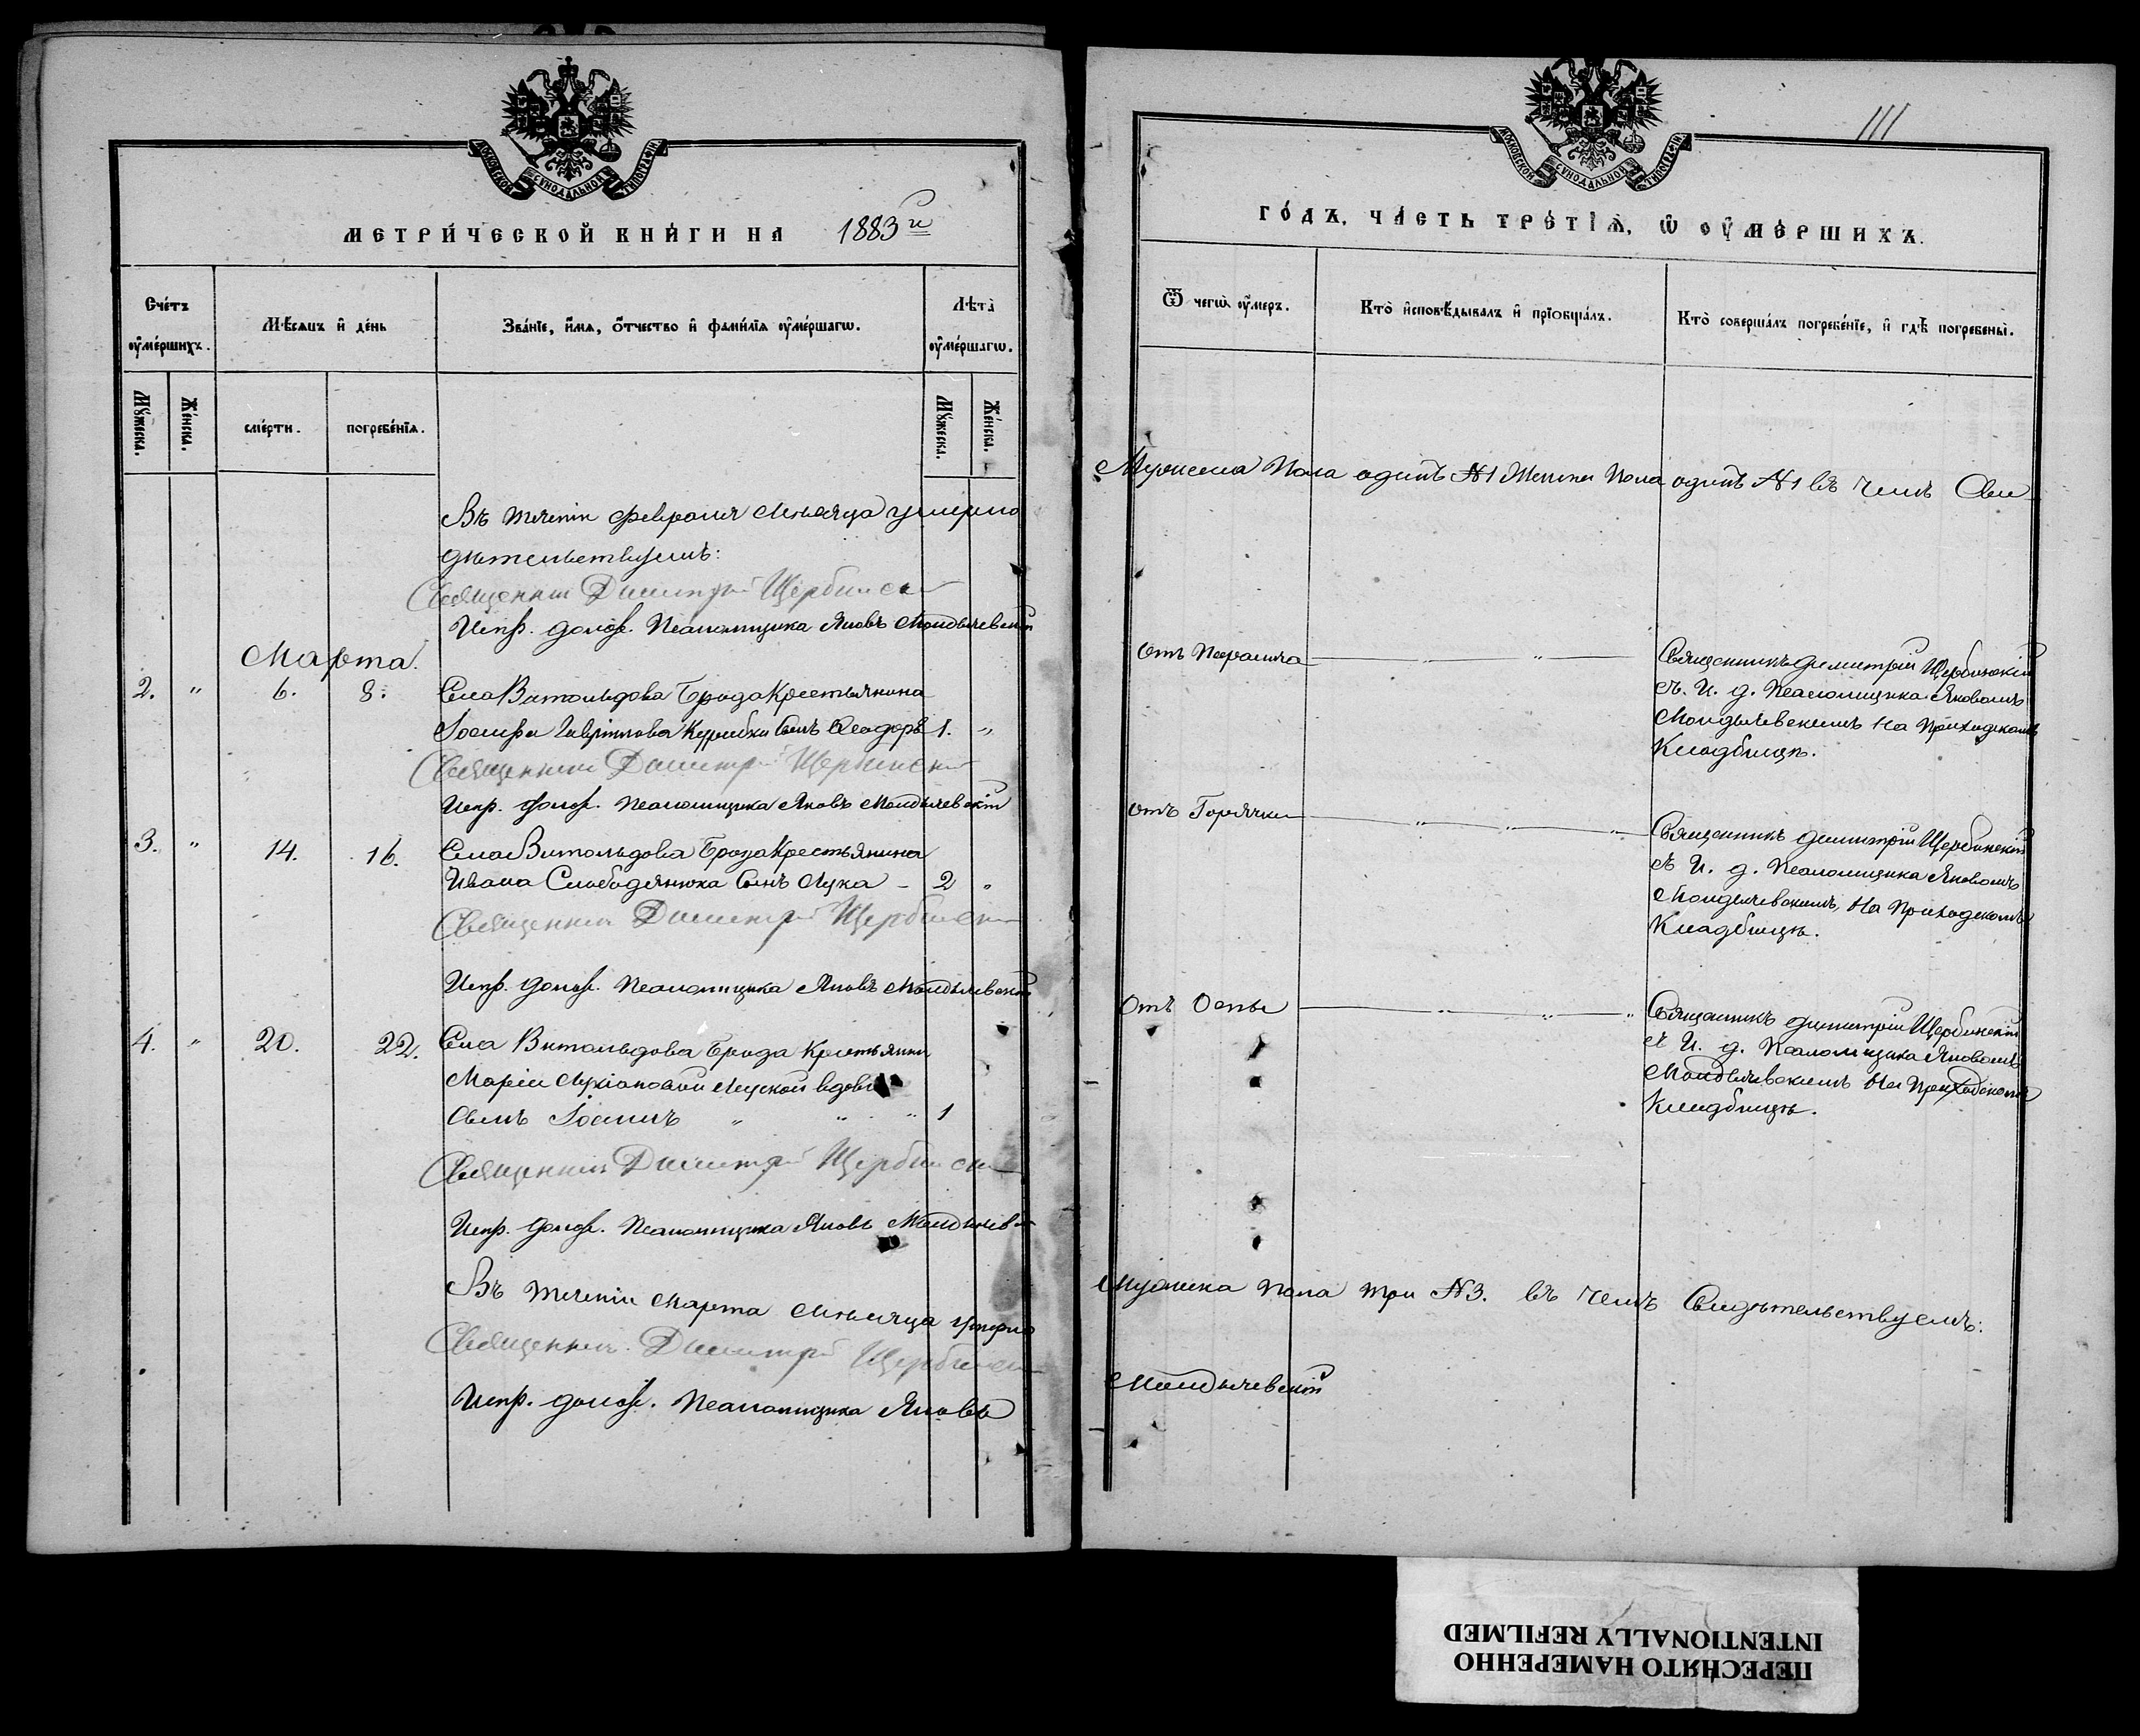 МОСКОВСКОЙ СѴНОДАЛЬНОЙ ТИПОГРАФІИ
МЕТРИ́ЧЕСКОЙ КНИ́ГИ НА 1883й
Сче́тъ ѹ҆ме́ршихъ.
Мѣ́сяцъ и҆ де́нь
Зва́нїе, и҆́мя, ѻ҆́тчество и҆ фами́лїя ѹ҆ме́ршагѡ.
Лѣ́та ѹ҆ме́ршагѡ.
Мꙋ́жеска.
Же́нска.
сме́рти.
погребе́нїя.
Мꙋ́жеска.
Же́нска.
Въ теченіи Февраля Мѣсяца умерло
дѣтельствуемъ:
Священникъ Димитрій Щербинскій
Испр. долж. Псаломщика Яковъ Мондычевскій
Марта.
2. " 6. 8. Села Витольдова Брода Крестьянина
Іосифа Сынъ Ѳеодоръ 1. "
Священникъ Димитрій Щербинскій
Испр. долж. Псаломщика Яковъ Мондычевскій
3. " 14. 16. Села Витольдова Брода Крестьянина
Ивана Слободянюка Сынъ Лука - 2 "
Священникъ Димитрій Щербинскій
Испр. долж. Псаломщика Яковъ Мондычевскій
4. " 20. 22. Села Витольдова Брода Крестьянки
Маріи Лукіановой вдовы
Сынъ Іоаннъ " " " 1
Священникъ Димитрій Щербинскій
Испр. долж. Псаломщика Яковъ Мондычевскій
Въ теченіи Марта Мѣсяца умерло
Священникъ Димитрій Щербинскій
Испр. долж. Псаломщика Яковъ
111
МОСКОВСКОЙ СѴНОДАЛЬНОЙ ТИПОГРАФІИ
ГО́ДЪ, ЧА́СТЬ ТРЕ́ТЇѦ, Ѡ ОУ҆МЕ́РШИХЪ.
Ѿ чегѡ̀ ѹ҆́меръ.
Кто̀ и҆сповѣ́дывалъ и҆ прїобща́лъ.
Кто̀ соверша́лъ погребе́нїе, и҆ гдѣ̀ погребены̀.
Мужеска Пола одинъ №1 Женска Пола одинъ №1 въ чемъ Сви
отъ Паралича " Священникъ Димитрій Щербинскій
съ И. д. Псаломщика Яковомъ
Мондычевскимъ На Приходскомъ
Кладбищѣ.
отъ Горячки " " " Священникъ Димитрій Щербинскій
съ И. д. Псаломщика Яковомъ
Мондычевскимъ На Приходскомъ
Кладбищѣ.
Отъ Оспы " " " Священникъ Димитрій Щербинскій
съ И. д. Псаломщика Яковомъ
Мондычевскимъ На Приходскомъ
Кладбищѣ.
Мужеска Пола три №3. въ чемъ Свидѣтельствуемъ:
Мондычевскій
ПЕРЕСНЯТО НАМЕРЕННО
INTENTIONALLY REFILMED